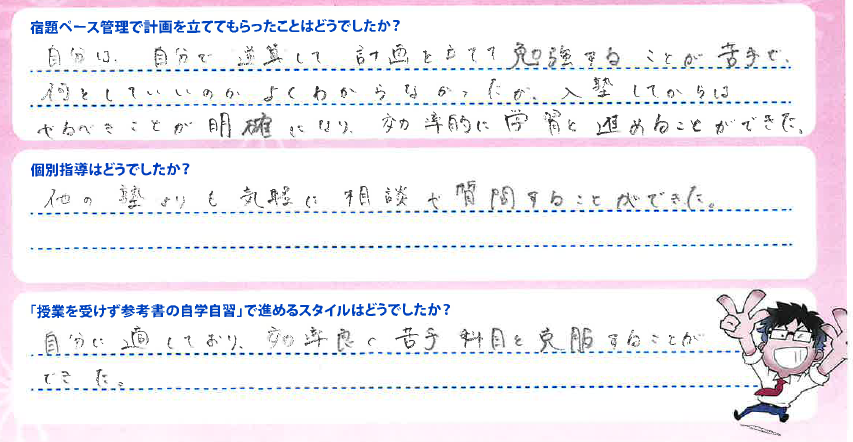 宿題ペース管理で計画を立ててもらったことはどうでしたか？
自分は、自分で逆算して計画を立てて勉強することが苦手で、
何をしていいのかよくわからなかったが、入塾してからは
やるべきことが明確になり、効率的に学習を進めることができた。
個別指導はどうでしたか？
他の塾よりも気軽に相談や質問することができた。
「授業を受けず参考書の自学自習」で進めるスタイルはどうでしたか？
自分に適しており、効率良く苦手科目を克服することが
できた。